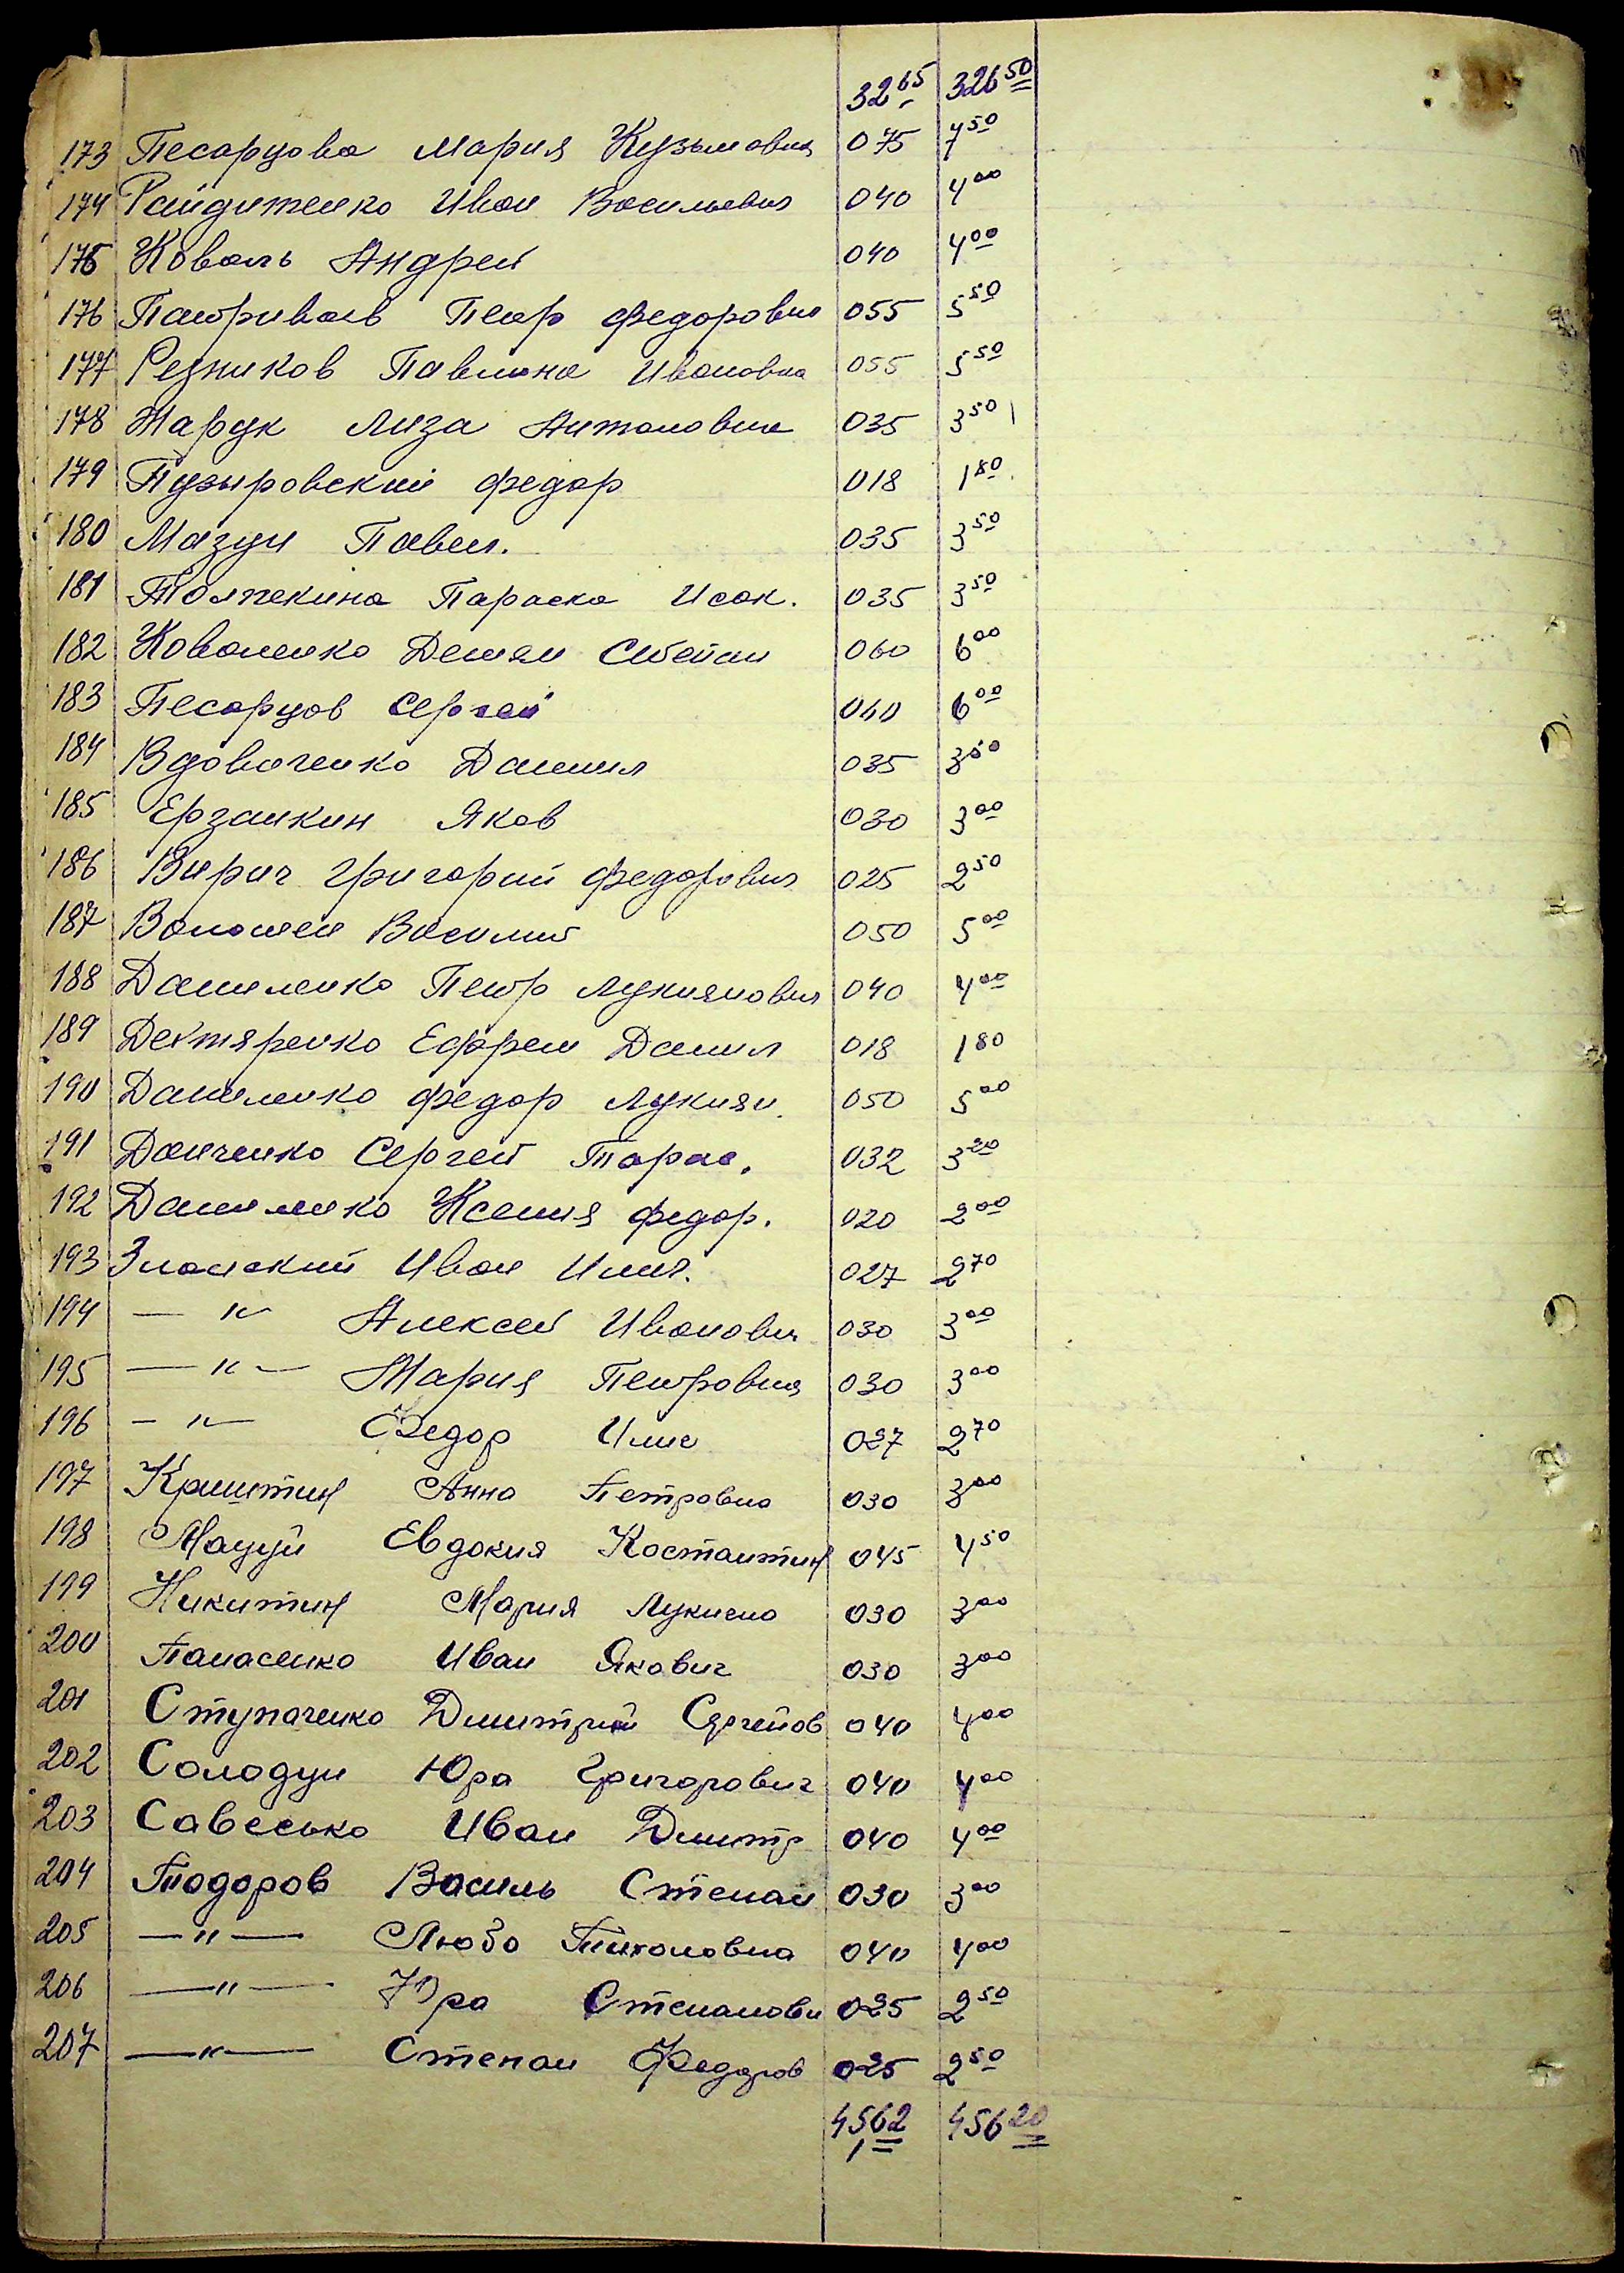 32 65 326 50
173 Песарцова Мария Кузьмовна 075 7 50
174 Райдитенко Иван Васильевич 040 4 00
175 Коваль Андрей 040 4 00
176 Петр Федорович 055 5 50
177 Резников Павлина Ивановна 055 5 50
178 Марук Лиза Антоновна 035 3 50
179 Пузыровский Федор 018 1 80
180 Мазун Павел. 035 3 50
181 Параска Исак. 035 3 50
182 Коваленко Демян Степан 060 6 00
183 Песарцов Сергей 060 6 00
184 Вдовиченко Данил 035 3 50
185 Ерзамкин Яков 030 3 00
186 Вирич Григорий Федорович 025 2 50
187 Волошен Василий 050 5 00
188 Даниленко Петр Лукиянович 040 4 00
189 Дехтяренко Ефрем Данил 018 1 80
190 Даниленко Федор Лукиян. 050 5 00
191 Данченко Сергей Тарас. 032 3 20
192 Даниленко Ксения Федор. 020 2 00
193 Злотский Иван Илич. 027 2 70
194 — " Алексей Иванович 030 3 00
195 — " — Мария Петровна 030 3 00
196 — " — Федор Илич 027 2 70
197 Криштин Анна Петровна 030 3 00
198 Мацуй Евдокия Костантин 045 4 50
199 Никитин Мария Лукиена 030 3 00
200 Панасенко Иван Якович 030 3 00
201 Ступаченко Дмитрий Сергеев 040 4 00
202 Солодун Юра Григорович 040 4 00
203 Савесько Иван Дмитр 040 4 00
204 Тодоров Василь Степан 030 3 00
205 — " — Люба Тихоновна 040 4 00
206 — " — Юра Степанови 025 2 50
207 — " — Степан Федоров 025 2 50
45 62 456 20